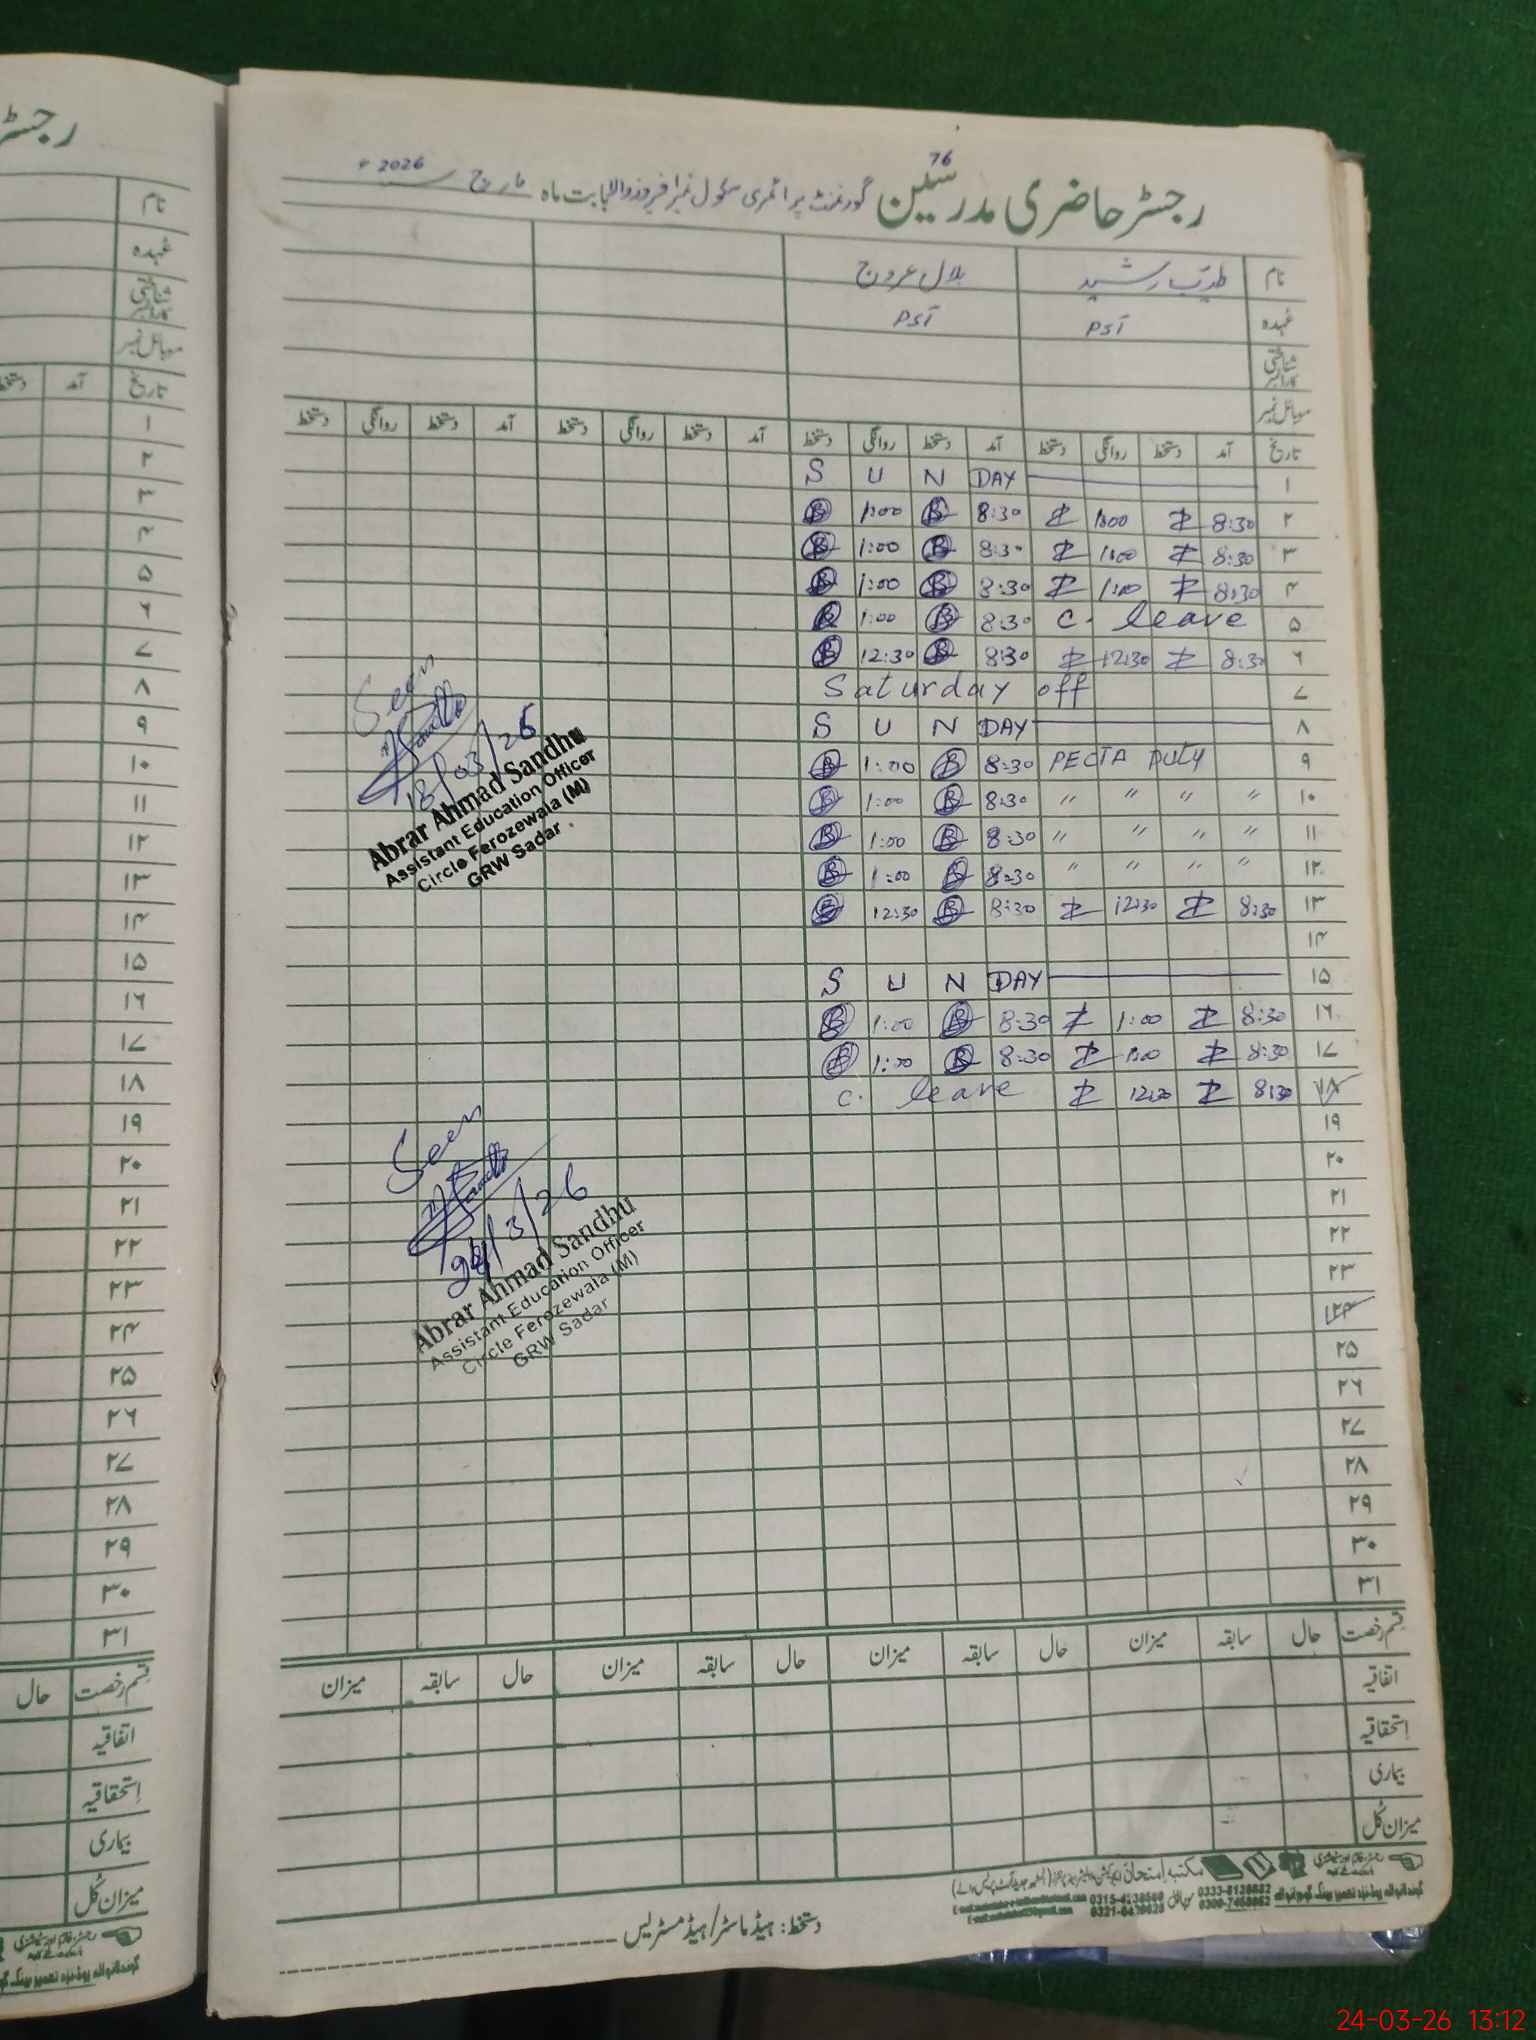 76
رجسٹر حاضری مدرسین گورنمنٹ پرائمری سکول نمبر ا فیروزوالہ بابت ماہ مارچ 2026ء
نام طیب رشید بلال عروج
عہدہ PST PST
شناختی کارڈ نمبر
موبائل نمبر
تاریخ آمد دستخط روانگی دستخط آمد دستخط روانگی دستخط آمد دستخط روانگی دستخط آمد دستخط روانگی دستخط
S U N DAY ۱
1:00 8:30 1:00 8:30 ۲
1:00 8:30 1:00 8:30 ۳
1:00 8:30 1:00 8:30 ۴
1:00 8:30 C. leave ۵
12:30 8:30 12:30 8:30 ۶
Saturday off ۷
S U N DAY ۸
1:00 8:30 PECTA DUTY ۹
1:00 8:30 " " " " ۱۰
1:00 8:30 " " " " ۱۱
1:00 8:30 " " " " ۱۲
12:30 8:30 12:30 8:30 ۱۳
۱۴
S U N DAY ۱۵
1:00 8:30 1:00 8:30 ۱۶
1:00 8:30 1:00 8:30 ۱۷
C. leave 12:30 8:30 ۱۸
۱۹
۲۰
۲۱
۲۲
۲۳
۲۴
۲۵
۲۶
۲۷
۲۸
۲۹
۳۰
۳۱
Seen
18/03/26
Abrar Ahmad Sandhu
Assistant Education Officer
Circle Ferozewala (M)
GRW Sadar
Seen
24/3/26
Abrar Ahmad Sandhu
Assistant Education Officer
Circle Ferozewala (M)
GRW Sadar
قسم رخصت حال سابقہ میزان حال سابقہ میزان حال سابقہ میزان حال سابقہ میزان
اتفاقیہ
استحقاقیہ
بیماری
میزان کُل
دستخط: ہیڈ ماسٹر/ہیڈ مسٹریس
نام
عہدہ
شناختی کارڈ نمبر
موبائل نمبر
تاریخ آمد دستخط
۱
۲
۳
۴
۵
۶
۷
۸
۹
۱۰
۱۱
۱۲
۱۳
۱۴
۱۵
۱۶
۱۷
۱۸
۱۹
۲۰
۲۱
۲۲
۲۳
۲۴
۲۵
۲۶
۲۷
۲۸
۲۹
۳۰
۳۱
قسم رخصت حال
اتفاقیہ
استحقاقیہ
بیماری
میزان کُل
24-03-26 13:12